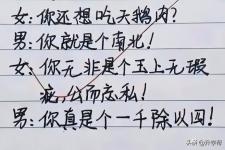 女:你还想吃天鹅肉?
男:你就是个南北!
女:你无非是个玉上无瑕
疵,公而忘私!
男:你真是个一千除以四!